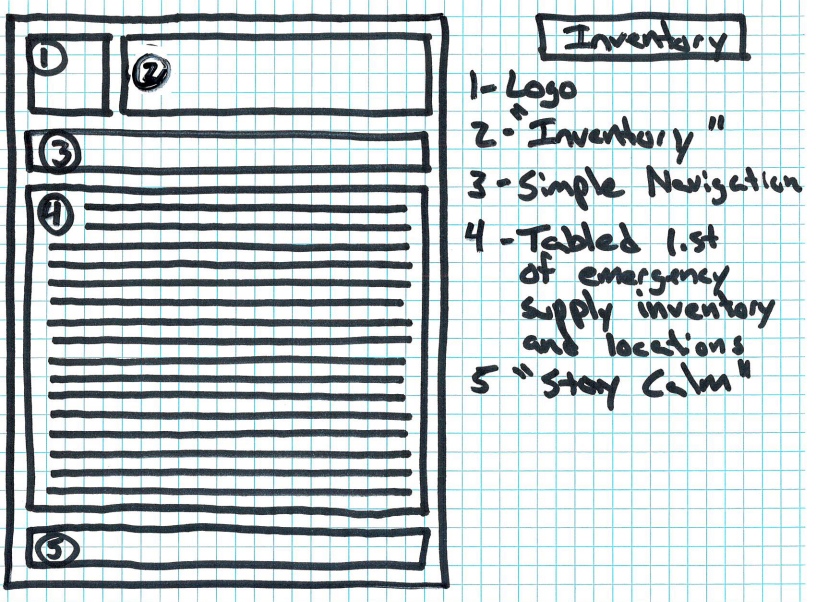 Inventory
1
2
3
4
5
1-Logo
2-"Inventory"
3-Simple Navigation
4-Tabled list
of emergency
supply inventory
and locations
5 "Stay Calm"